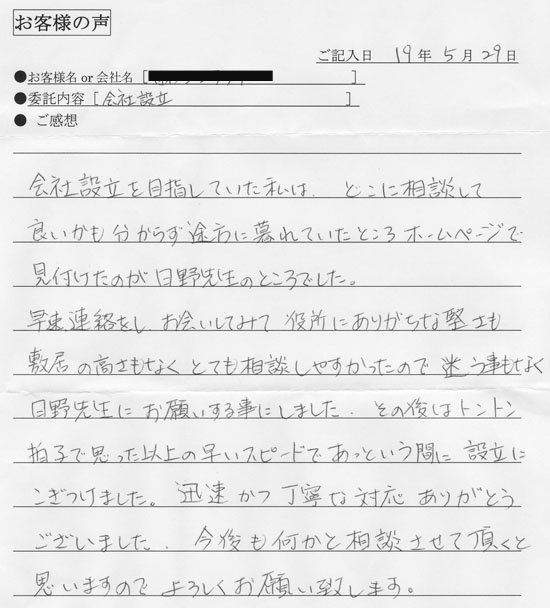 お客様の声
ご記入日 19年5月29日
●お客様名 or 会社名 [ ]
●委託内容 [会社設立 ]
● ご感想
会社設立を目指していた私は、どこに相談して
良いかも分からず途方に暮れていたところホームページで
見付けたのが日野先生のところでした。
早速連絡をし お会いしてみて 役所にありがちな堅さも
敷居の高さもなく とても相談しやすかったので 迷う事もなく
日野先生に お願いする事にしました. その後はトントン
拍子で思った以上の早いスピードであっという間に 設立に
こぎつけました。迅速かつ丁寧な対応 ありがとう
ございました. 今後も何かと相談させて頂くと
思いますので よろしくお願い致します。